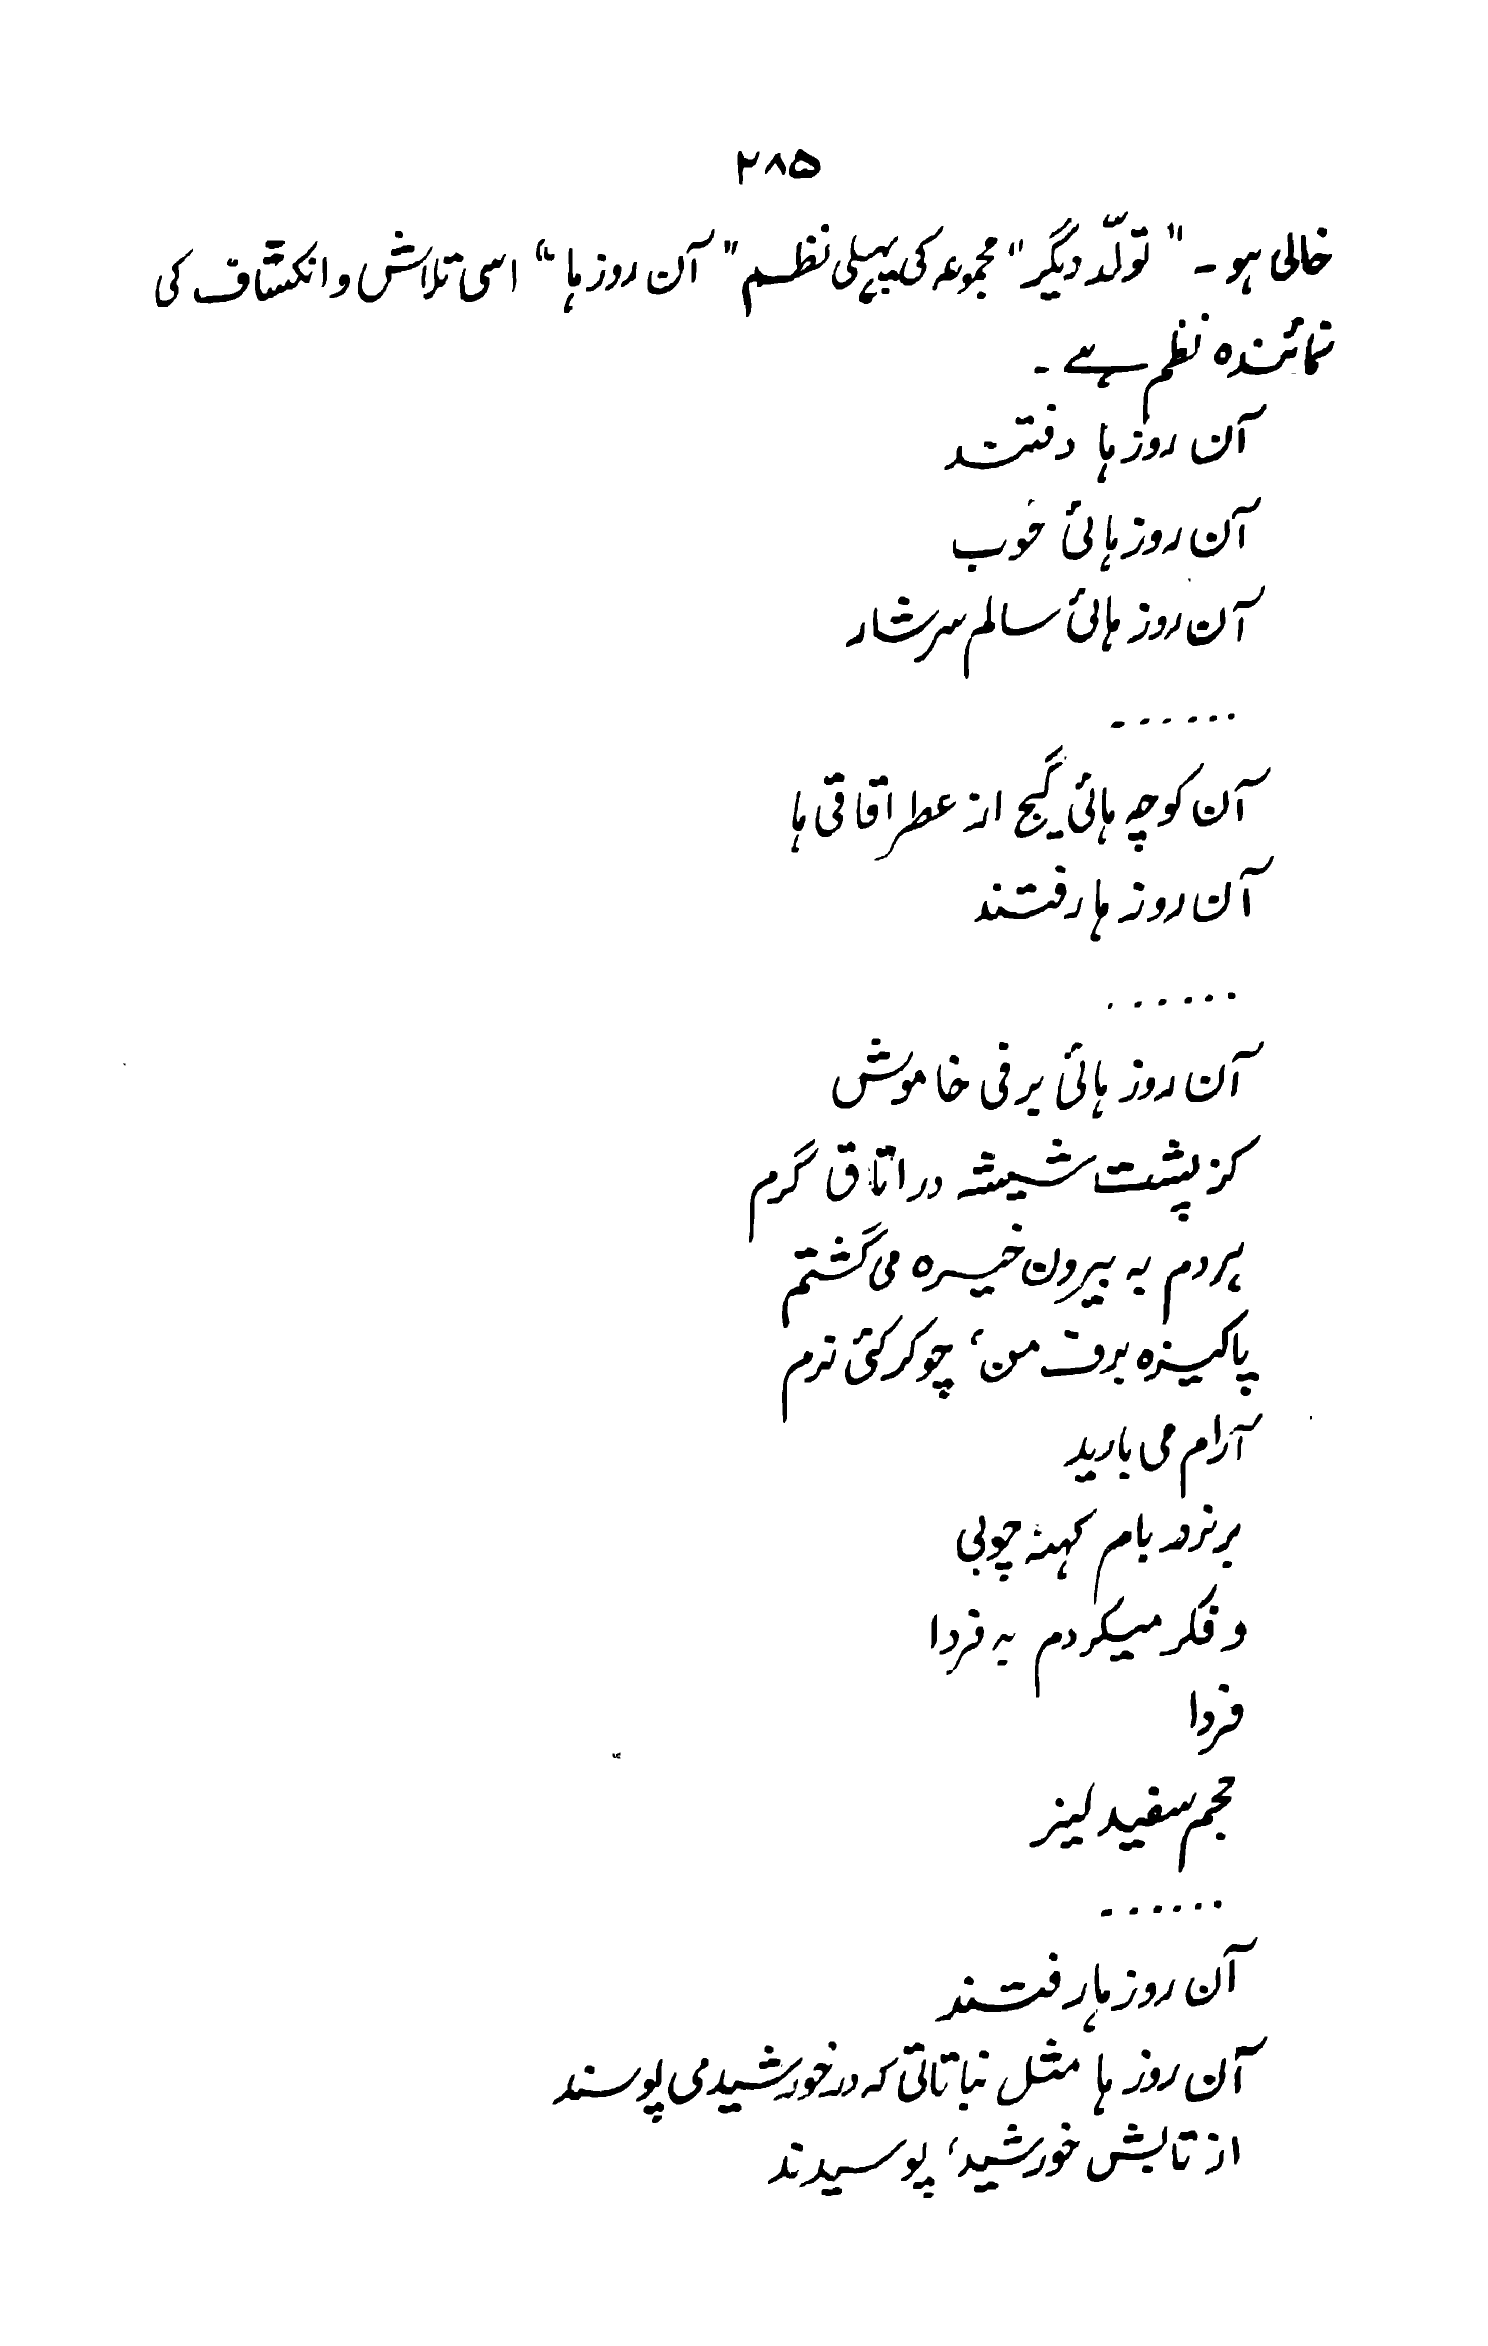 ۲۸۵
خالی ہو۔ "تولّد دیگر" مجموعہ کی پہلی نظم "آن روز ہا" اسی تلاش و انکشاف کی
نمائندہ نظم ہے۔
آن روز ہا رفتند
آن روز ہائی خوب
آن روز ہائی سالم سرشار
......
آن کوچہ ہائی گیج از عطر اقاقی ہا
آن روز ہا رفتند
......
آن روز ہائی برفی خاموش
کز پشت شیشہ در اتاق گرم
ہردم بہ بیرون خیرہ می گشتم
پاکیزہ برف من، چو کرکئی نرم
آرام می بارید
بر نردبام کہنہ چوبی
و فکر میکردم بہ فردا
فردا
حجم سفید لیز
......
آن روز ہا رفتند
آن روز ہا مثل نباتاتی کہ در خورشید می پوسند
از تابش خورشید، پوسیدند